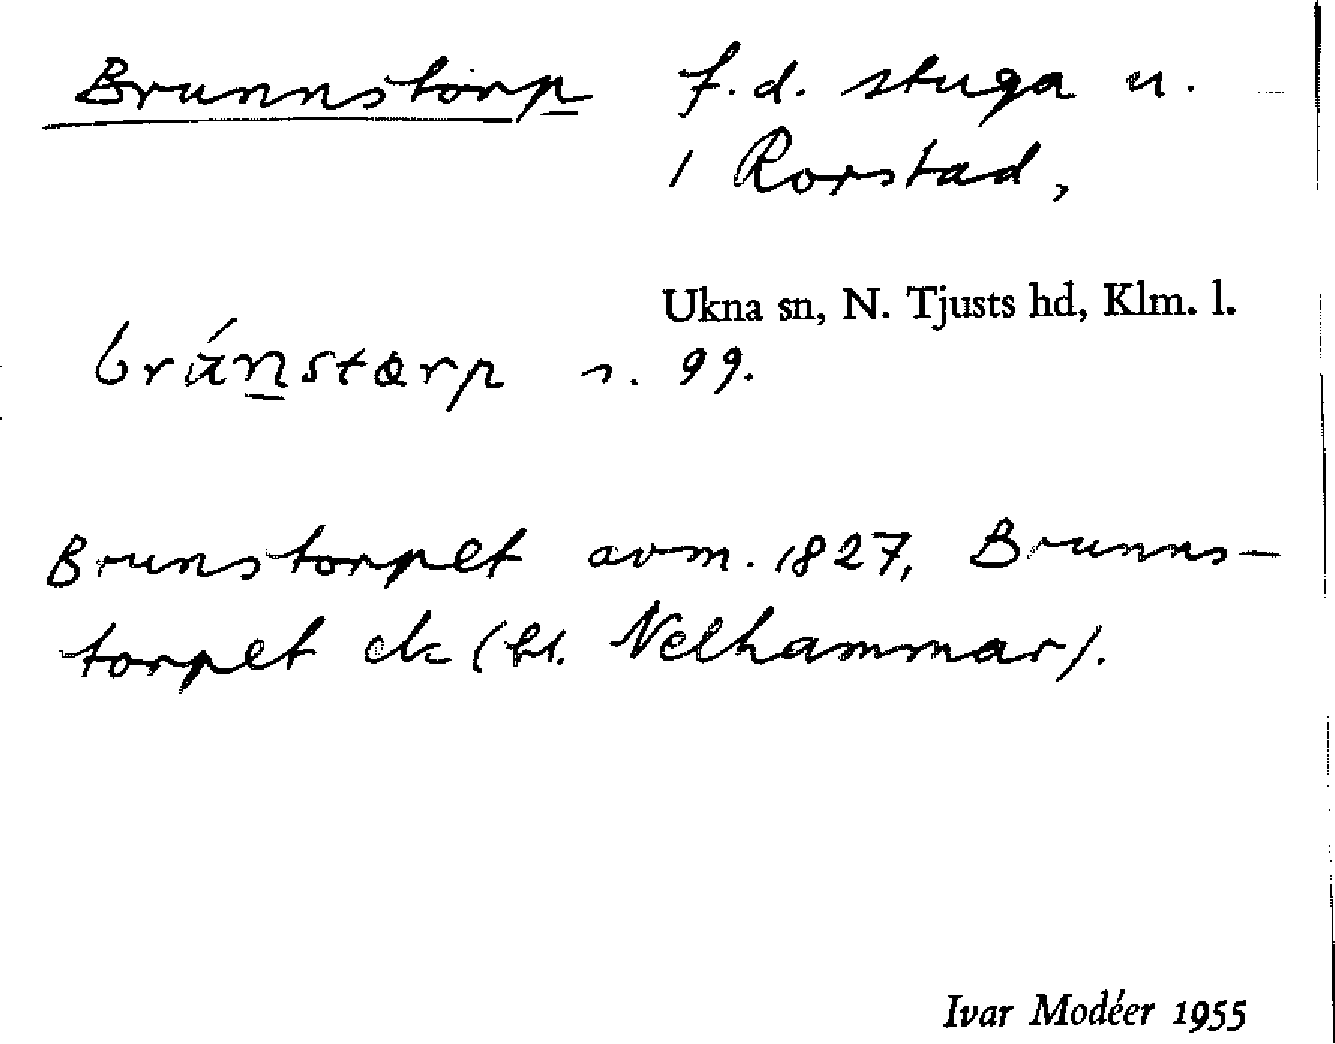 Brunnstorp f.d. stuga u.
1 Rorstad,
Ukna sn, N. Tjusts hd, Klm. l.
bránstorp s. 99.
Brunstorpet avm. 1827, Brunns-
torpet ek (bl. Nelhammar).
Ivar Modéer 1955